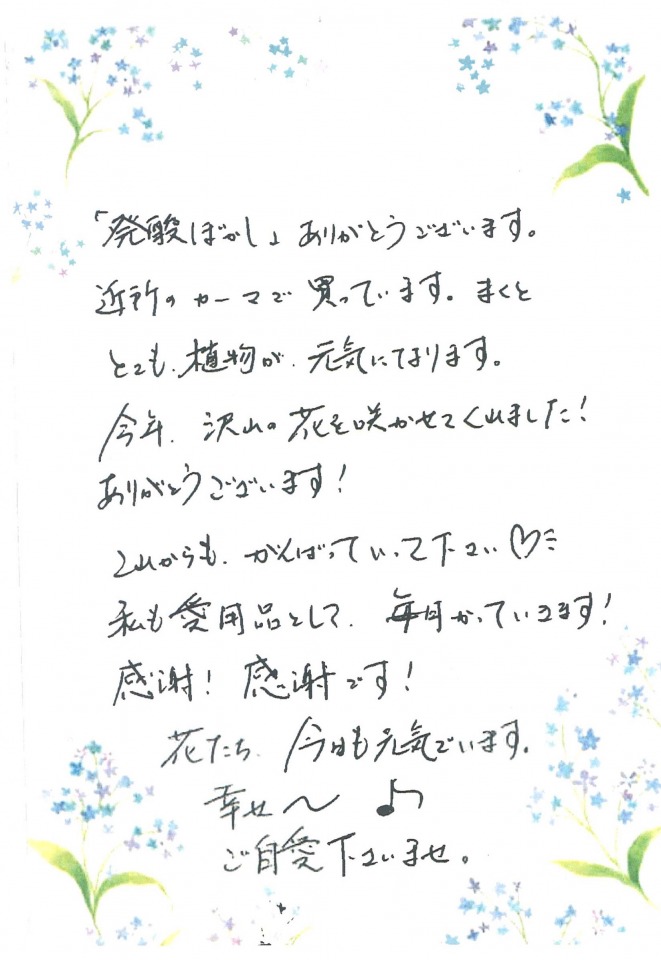 「発酸ぼかし」ありがとうございます。
近所のカーマで買っています。まくと
とても、植物が、元気になります。
今年、沢山の花を咲かせてくれました！
ありがとうございます！
これからも、がんばっていって下さい♡
私も愛用品として、毎月かっていきます！
感謝！感謝です！
花たち、今日も元気でいます。
幸せ〜♪
ご自愛下さいませ。